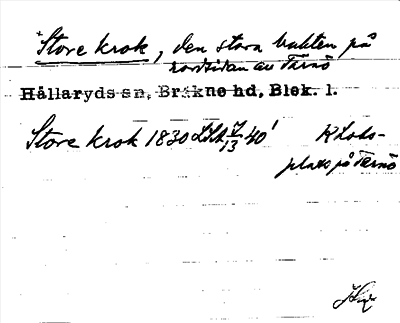 *Store krok, den stora bukten på
nordsidan av Tärnö
Hållaryds sn, Bräkne hd, Blek. l.
Store krok 1830 LSA 7/13 40' K Lots-
plats på Tärnö